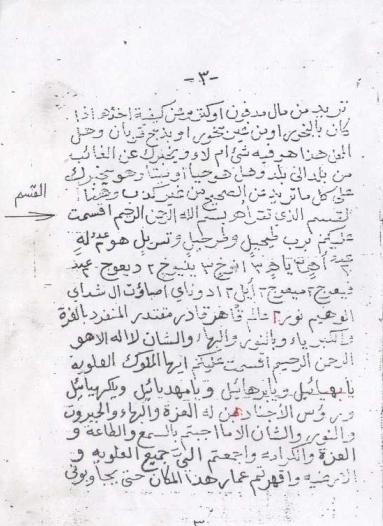 -٣-
تريد من مال مدفون او كنز ومن كيفية اخذه اذا
كان بالبخور او من غير بخور او بذبح قربان وهل
المكان هذا هو فيه شئ ام لا ويخبرك عن الغائب
من بلد الى بلد وهل هو حيا او ميتا وهو يخبرك
على كل ما تريد عن الصحيح من غير كذب وهذا
القسم
القسم الذي تقراه بسم الله الرحمن الرحيم اقسمت
عليكم برب هو
٢ ديعوج ٢
٢ ادوناي اصباؤت ال شداي
الوهيم نور عالم قاهر قادر مقتدر المنفرد بالعزة
والكبرياء وبالنور والبهاء والشان لا اله الا هو
الرحمن الرحيم اقسمت عليكم ايها الملوك العلوية
ورؤس الاجناد من له العزة والبهاء والجبروت
والنور والشان الا ما اجبتم بالسمع والطاعة و
العزة والكرامة واجمعتم الى جميع العلويه و
الارضيه واقهرتم عمار هذا المكان حتى يجاوبوني